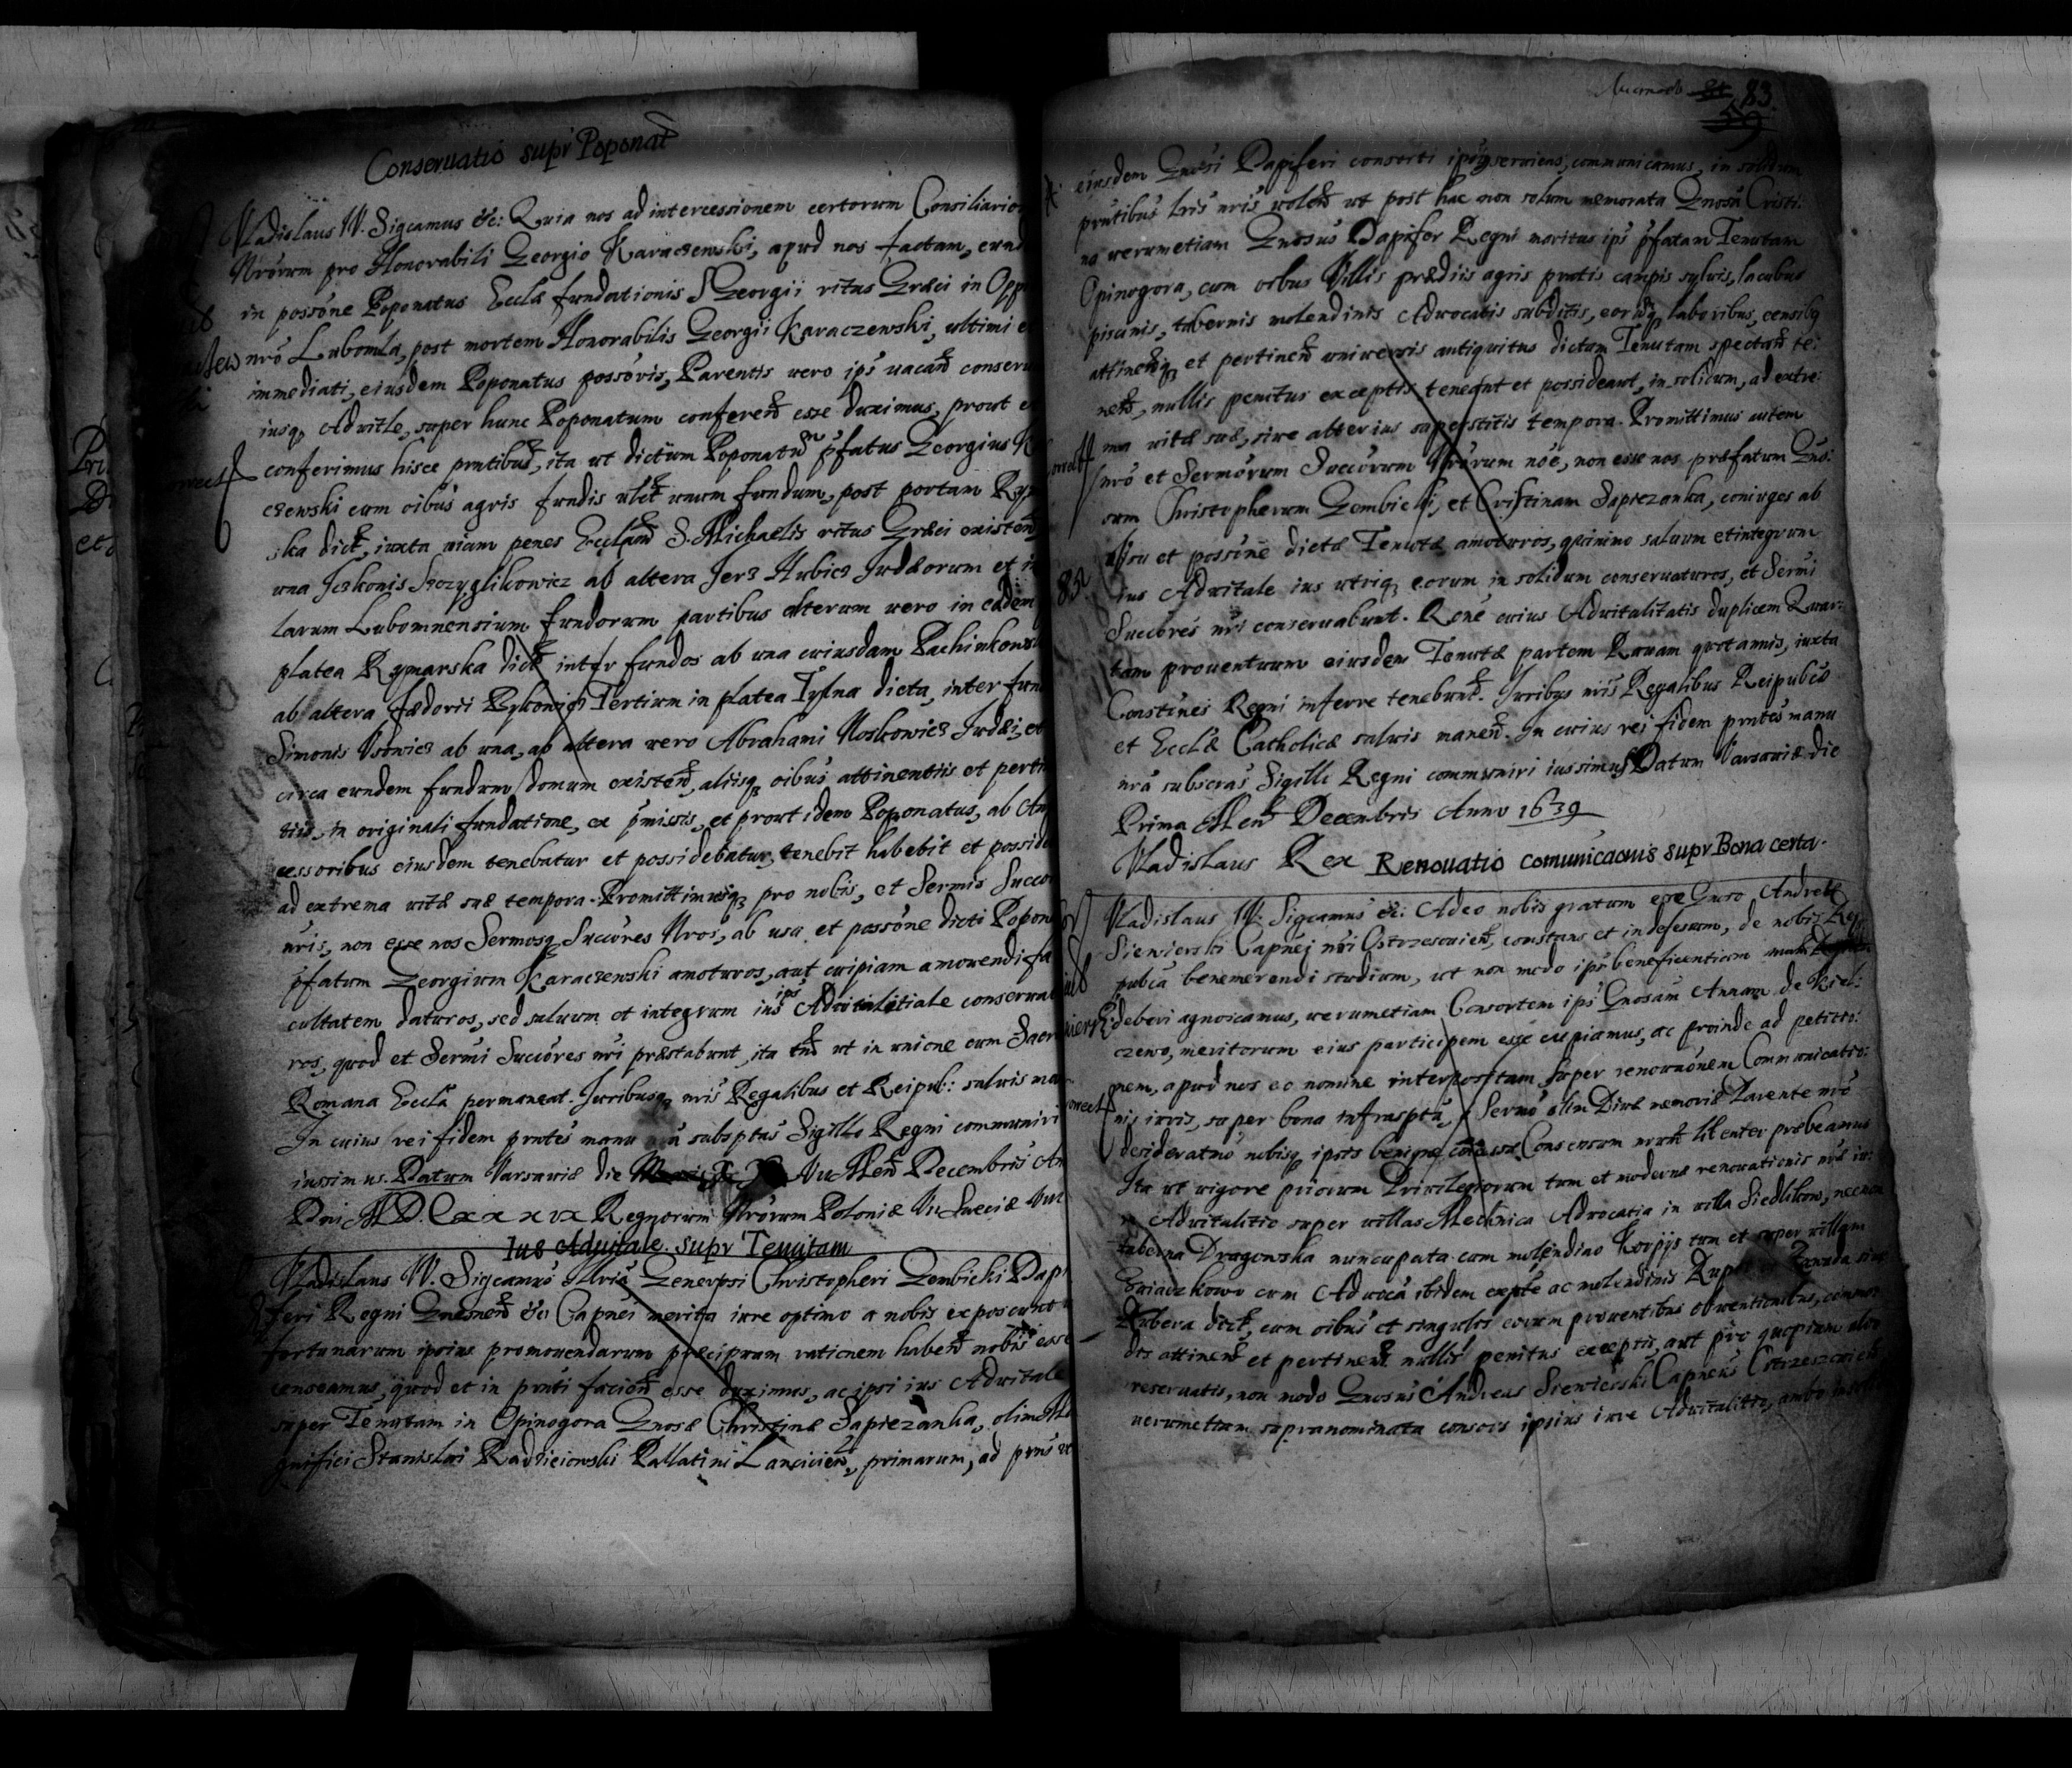 Conseruatio supr Poponat
Vladislaus IV. Sigcamus &c: Quia nos ad intercessionem certorum Consiliarior
Nrorum pro Honorabili Georgio Karaczewski, apud nos factam, eund
in possone Poponatus Eccla fundationis S Georgii ritus Græci in Opp
nro Lubomla, post mortem Honorabilis Georgii Karaczewski, ultimi e
immediati, eiusdem Poponatus possoris, Parentis vero ips vacan conseru
iusq Aduitle, super hunc Poponatum conferen esse duximus, prout e
conferimus hisce pntibus, ita ut dictum Poponatum pfatus Georgius K
czewski cum oibus agris fundis ulit unum fundum, post portam Rym
ska dict, iuxta viam penes Ecclam S. Michaelis ritus Græci existen
una Jczkonis Szczyglikowicz ab altera Jerz Hubicz Judæorum et i
larum Lubomnensium fundorum partibus alterum vero in eadem
platea Rymarska dict inter fundos ab una cuiusdam Pachinkow
ab altera Fædorii Pykowicz Tertium in platea Tylna dicta, inter fun
Simonis Usowicz ab una, ab altera vero Abrahami Moskowicz Judæi, et
circa eundem fundum domum existen, aliisq oibus attinentiis et perti
tiis, in originali fundatione, ex pmissis, et prout idem Poponatus, ab An
cessoribus eiusdem tenebatur et possidebatur, tenebit habebit et possid
ad extrema vitæ suæ tempora. Promittimusq pro nobis, et Sermis Succo
nris, non esse nos Sermosq Succores Nros, ab usu et possone dicti Popon
pfatum Georgium Karaczewski amoturos, aut cuipiam amouendi fa
cultatem daturos, sed saluum et integrum ius ips Aduitalitiale conseruat
ros, quod et Sermi Succores nri præstabunt, ita tn ut in unione cum Sacr
Romana Eccla permaneat. Juribusq nris Regalibus et Reipub: saluis ma
In cuius rei fidem pntes manu nra subsptas Sigillo Regni communiri
iussimus. Datum Varsauiæ die VII Men Decembris An
Dni MDCXXXIX Regnorum Nrorum Poloniæ VII Sueciæ VIII
Ius Aduitale supr Tenutam
Vladislaus IV. Sigcamus Illria Generosi Christopheri Gembicki Dapi
feri Regni Gnesnen &c Capnei merita iure optimo a nobis exposcunt
fortunarum ipsius promouendarum præcipuam rationem haben nobis esse
censeamus, quod et in pnti facien esse duximus, ac ipsi ius Aduitale
super Tenutam in Opinogora Gnosæ Christinæ Sapiezanka, olim Ma
gnifici Stanislai Radzieiowski Pallatini Lancicien, primarum, ad pns
83
59
eiusdem Gnosi Dapiferi consorti ipsi seruiens, communicamus, in solidum
pntibus lris nris volen ut post hac non solum memorata Gnosa Cristi:
na verumetiam Gnosus Dapifer Regni maritus ips pfatam Tenutam
Opinogora, cum oibus Villis prædiis agris pratis campis syluis, lacubus
piscinis, tabernis molendinis Aduocatis subditis, eorumq laboribus, censibq
attinenq et pertinen uniuersis antiquitus dictam Tenutam spectan te:
nen, nullis penitus exceptis teneant et possideant, in solidum, ad extre:
ma vitæ suæ, siue alterius superstitis tempora. Promittimus autem
nro et Sermorum Succorum Nrorum noe, non esse nos præfatum Gno:
sum Christopherum Gembicki, et Cristinam Sapiezanka, coniuges ab
usu et possone dictæ Tenutæ amoturos, quinimo saluum et integrum
ius Aduitale ius utriq eorum in solidum conseruaturos, et Sermi
Succores nri conseruabunt. Rone cuius Aduitalitatis duplicem Quar:
tam prouentuum eiusdem Tenutæ partem Rauam quotannis, iuxta
Constones Regni inferre tenebunt. Juribus nris Regalibus Reipubcæ
et Ecclæ Catholicæ saluis manen. In cuius rei fidem pntes manu
nra subscras Sigillo Regni communiri iussimus Datum Varsauiæ die
Prima Men Decembris Anno 1639
Vladislaus Rex Renouatio comunicaonis supr Bona certa.
Vladislaus IV. Sigcamus &c: Adeo nobis gratum esse Gnoso Andreæ
Sieniexski Capnej nri Ostrzesouien, constans et indefessum, de nobis Rei
pubca benemerendi studium, ut non modo ips beneficentiam
deberi agnoscamus, verumetiam Consortem ips Gnosam Annam de Kiel:
czewo, meritorum eius participem esse cupiamus, ac proinde ad petitio:
nem, apud nos eo nomine interpositam super renouaonem Communicatio:
nis iuris, super bona infraspta, a Sermo olim Diuæ memoriæ Parente nro
desideratmo nobisq ipsis benigne Consensum nrum libenter præbeamus
Ita ut vigore priorum Priuilegiorum tum et modernæ renouationis nræ iu:
re Aduitalitio super villas Mechnica Aduocatia in villa Siedlikow, necnon
taberna Dragowska nuncupata cum molendino Korpijs tum et super villam
cum Aduoca ibidem expte ac molendinis
Rubera dict, cum oibus et singulis eorum prouentibus obuentionibus, commo:
dis attinen et pertinen nullis penitus exceptis, aut pro quopiam alio
reseruatis, non modo Gnosus Andreas Sieniexski Capneus Ostrzeszouien
verumetiam supranominata consors ipsius iure Aduitalitio, ambo